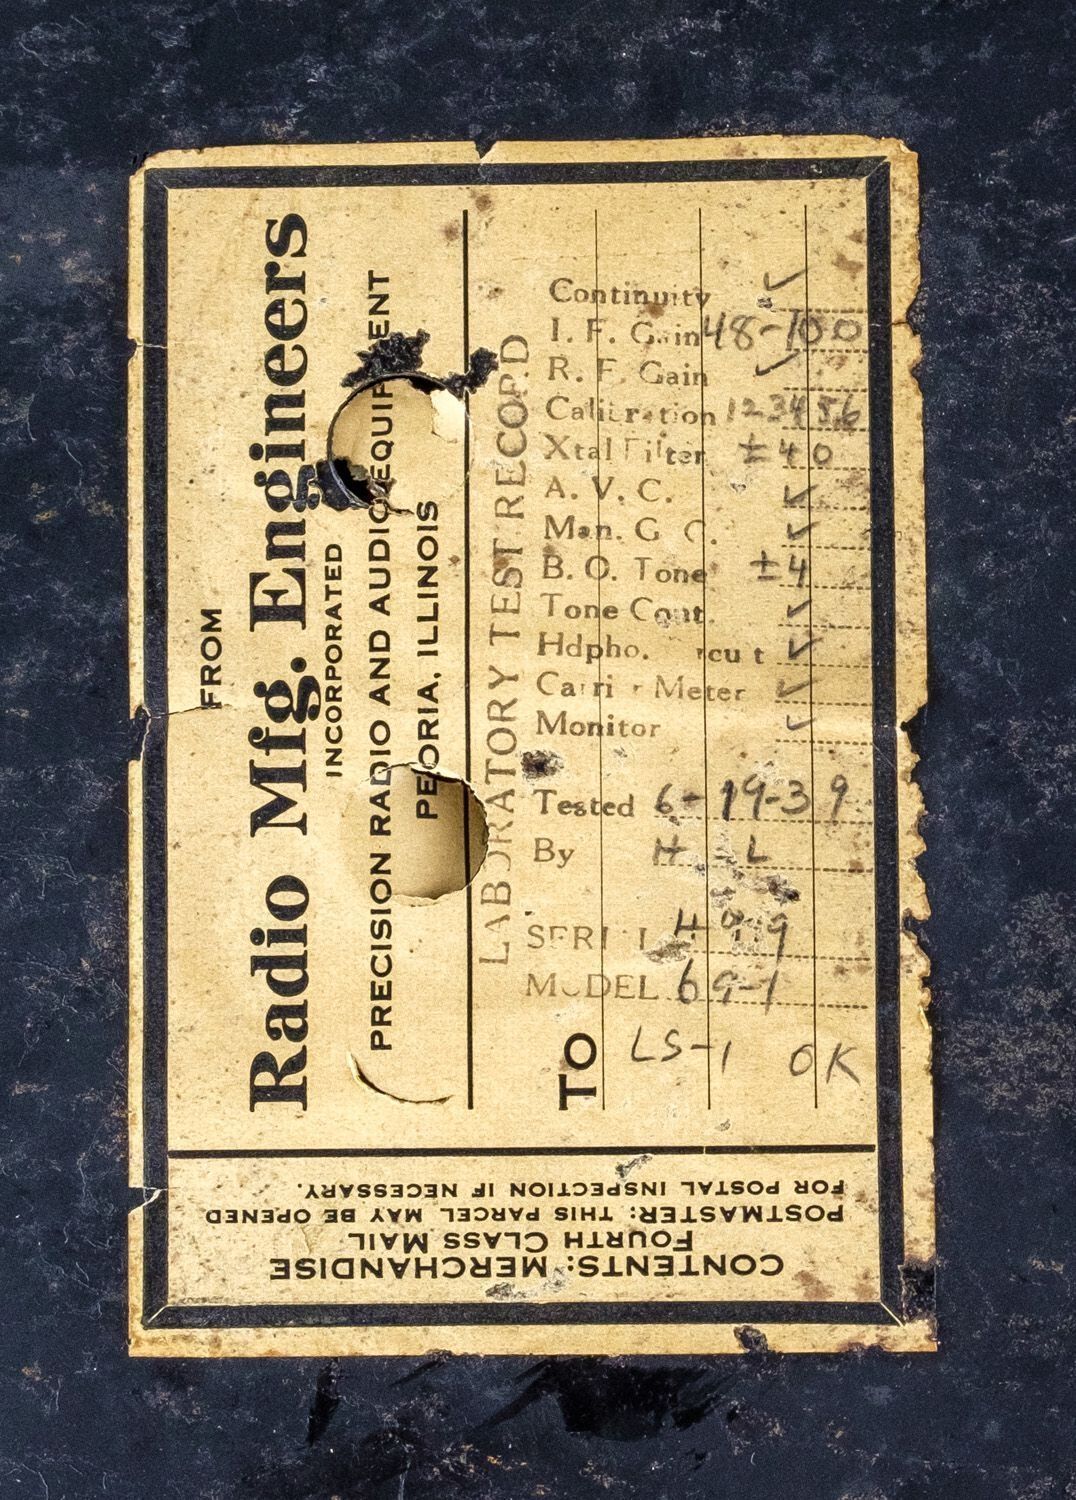 FROM
Radio Mfg. Engineers
INCORPORATED
PRECISION RADIO AND AUDIO EQUIPMENT
PEORIA, ILLINOIS
LABORATORY TEST RECORD
Continuity ✓
I. F. Gain 48-100
R. F. Gain ✓
Calibration 123456
Xtal Filter ±40
A. V. C. ✓
Man. G. C. ✓
B. O. Tone ±4
Tone Cont. ✓
Hdpho. ✓
Carrier Meter ✓
Monitor ✓
Tested 6-19-39
By
SERIAL
MODEL 69-1
TO LS-1 OK
CONTENTS: MERCHANDISE
FOURTH CLASS MAIL
POSTMASTER: THIS PARCEL MAY BE OPENED
FOR POSTAL INSPECTION IF NECESSARY.